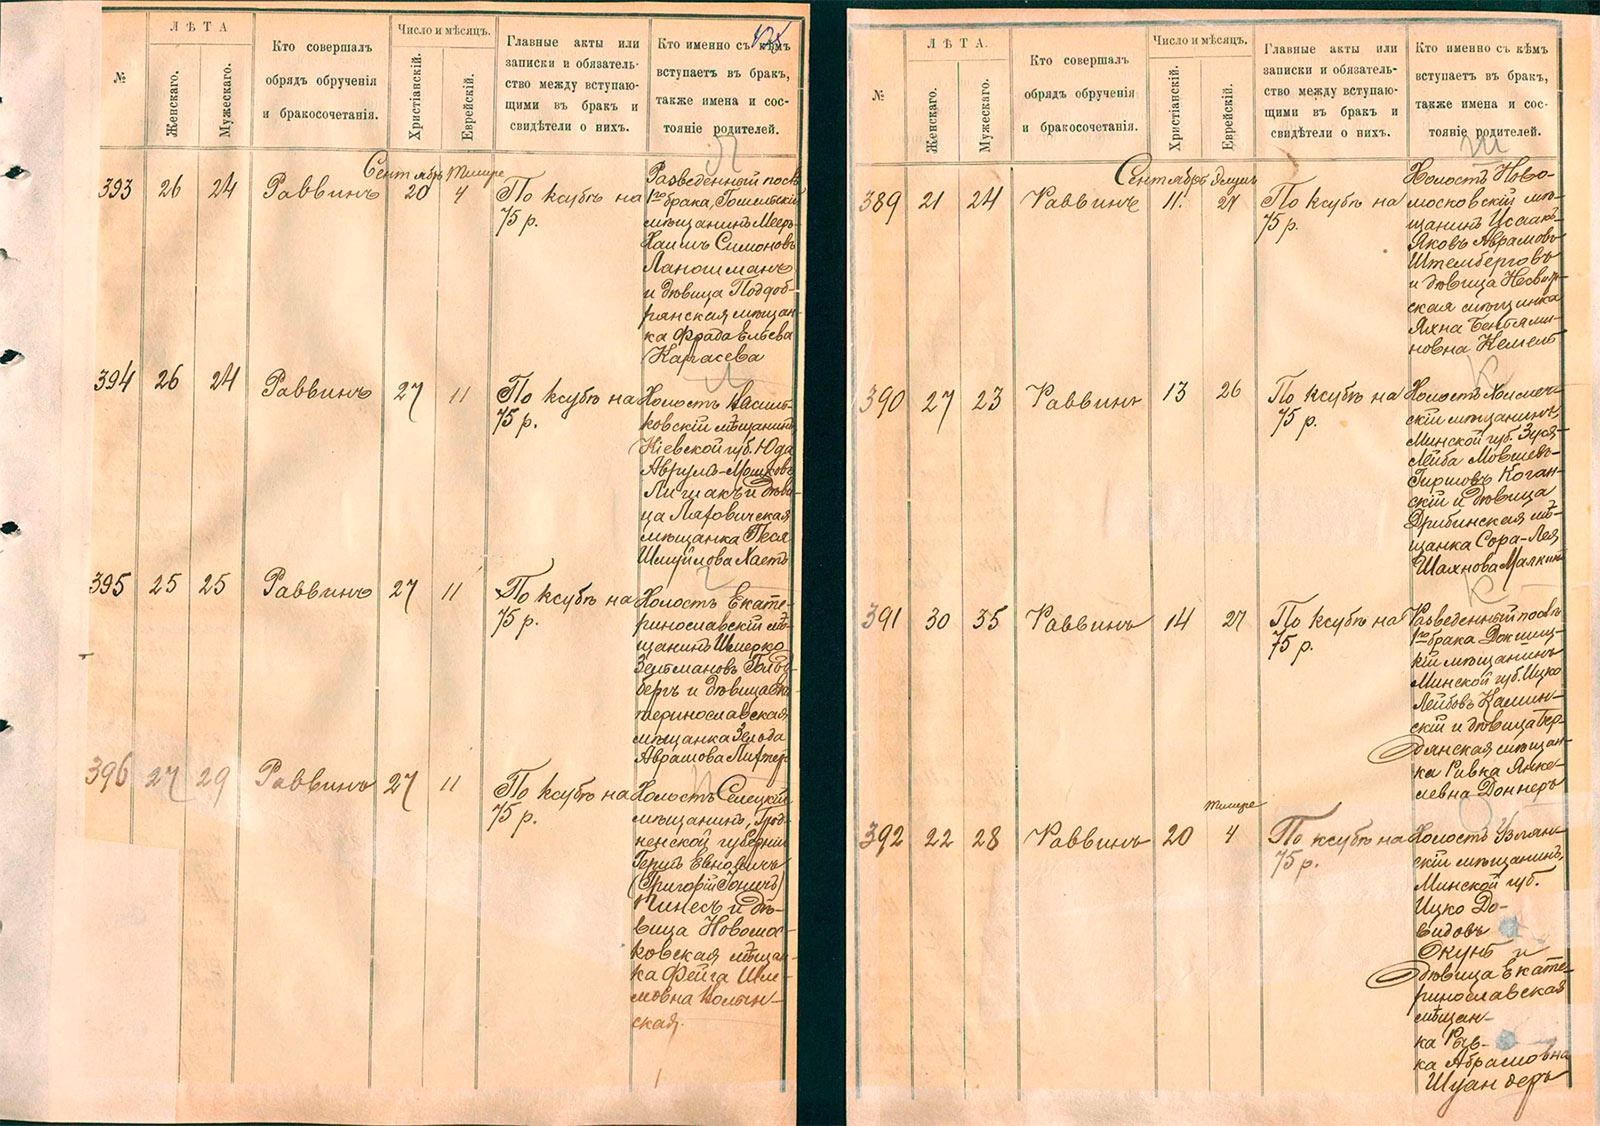 128
№
ЛѢТА
Женскаго.
Мужескаго.
Кто совершалъ
обрядъ обрученія
и бракосочетанія.
Число и мѣсяцъ.
Христіанскій.
Еврейскій.
Главные акты или
записки и обязатель-
ство между вступаю-
щими въ бракъ и
свидѣтели о нихъ.
Кто именно съ кѣмъ
вступаетъ въ бракъ,
также имена и сос-
тояніе родителей.
393 26 24 Раввинъ Сентябрь 20 Тишре 4
По ксубѣ на
75 р.
Разведенный послѣ
1го брака, Гомельскій
мѣщанинъ Мееръ-
Хаимъ Симоновъ
Ланцманъ
и дѣвица Поддоб-
рянская мѣщан-
ка Фрада Ельева
Каргасева
394 26 24 Раввинъ 27 11
По ксубѣ на
75 р.
Холостъ Василь-
ковскій мѣщанинъ
Кіевской губ. Юда
Аврумъ-Мошковъ
и дѣви-
ца Ляховичская
мѣщанка Песя
Шмуйлова Хастъ
395 25 25 Раввинъ 27 11
По ксубѣ на
75 р.
Холостъ Екате-
ринославскій мѣ-
щанинъ Шмерко
Зелмановъ Гольд-
бергъ и дѣвица Ека-
теринославская
мѣщанка Зелода
Аврамова Лифшер
396 27 29 Раввинъ 27 11
По ксубѣ на
75 р.
Холостъ Селецкій
мѣщанинъ, Грод-
ненской губерніи
Гершъ Евновичъ
(Григорій)
Пинесъ и дѣ-
вица Новомос-
ковская мѣщан-
ка Фейга Шле-
мовна Волын-
ская.
№
ЛѢТА.
Женскаго.
Мужескаго.
Кто совершалъ
обрядъ обрученія
и бракосочетанія.
Число и мѣсяцъ.
Христіанскій.
Еврейскій.
Главные акты или
записки и обязатель-
ство между вступаю-
щими въ бракъ и
свидѣтели о нихъ.
Кто именно съ кѣмъ
вступаетъ въ бракъ,
также имена и сос-
тояніе родителей.
Ш
389 21 24 Раввинъ Сентябрь 11. Элулъ 24
По ксубѣ на
75 р.
Холостъ Ново-
московскій мѣ-
щанинъ Исаакъ-
Яковъ Аврамовъ
Штемберговъ
и дѣвица Несвиж-
ская мѣщанка
Яхна Бентями-
новна Кемель
К
390 27 23 Раввинъ 13 26
По ксубѣ на
75 р.
Холостъ Холмеч-
скій мѣщанинъ,
Минской губ. Зуся-
Лейба Мовшевъ-
Гиршовъ Коган-
скій и дѣвица
Дрибинская мѣ-
щанка Сора-Лея
Шахнова Малкинъ
К
391 30 35 Раввинъ 14 27
По ксубѣ на
75 р.
Разведенный послѣ
1го брака Докшиц-
кій мѣщанинъ
Минской губ. Ицко
Лейбовъ Камин-
скій и дѣвица Бер-
дянская мѣщан-
ка Ривка Янке-
левна Доннеръ
О
392 22 28 Раввинъ 20 Тишре 4
По ксубѣ на
75 р.
Холостъ Узлян-
скій мѣщанинъ,
Минской губ.
Ицко До-
видовъ
Окунь и
дѣвица Екате-
ринославская
мѣщан-
ка Рыв-
ка Абрамовна
Шуандеръ